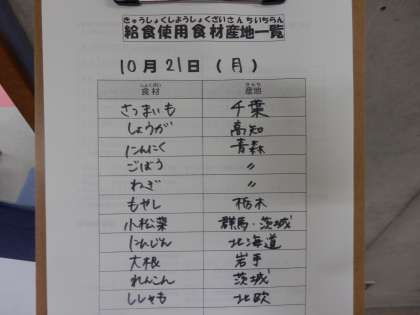 きゅうしょくしようしょくざいさんちいちらん
給食使用食材産地一覧
10月21日(月)
しょくざい さんち
食材 産地
さつまいも 千葉
しょうが 高知
にんにく 青森
ごぼう 〃
ねぎ 〃
もやし 栃木
小松菜 群馬・茨城
にんじん 北海道
大根 岩手
れんこん 茨城
ししゃも 北欧